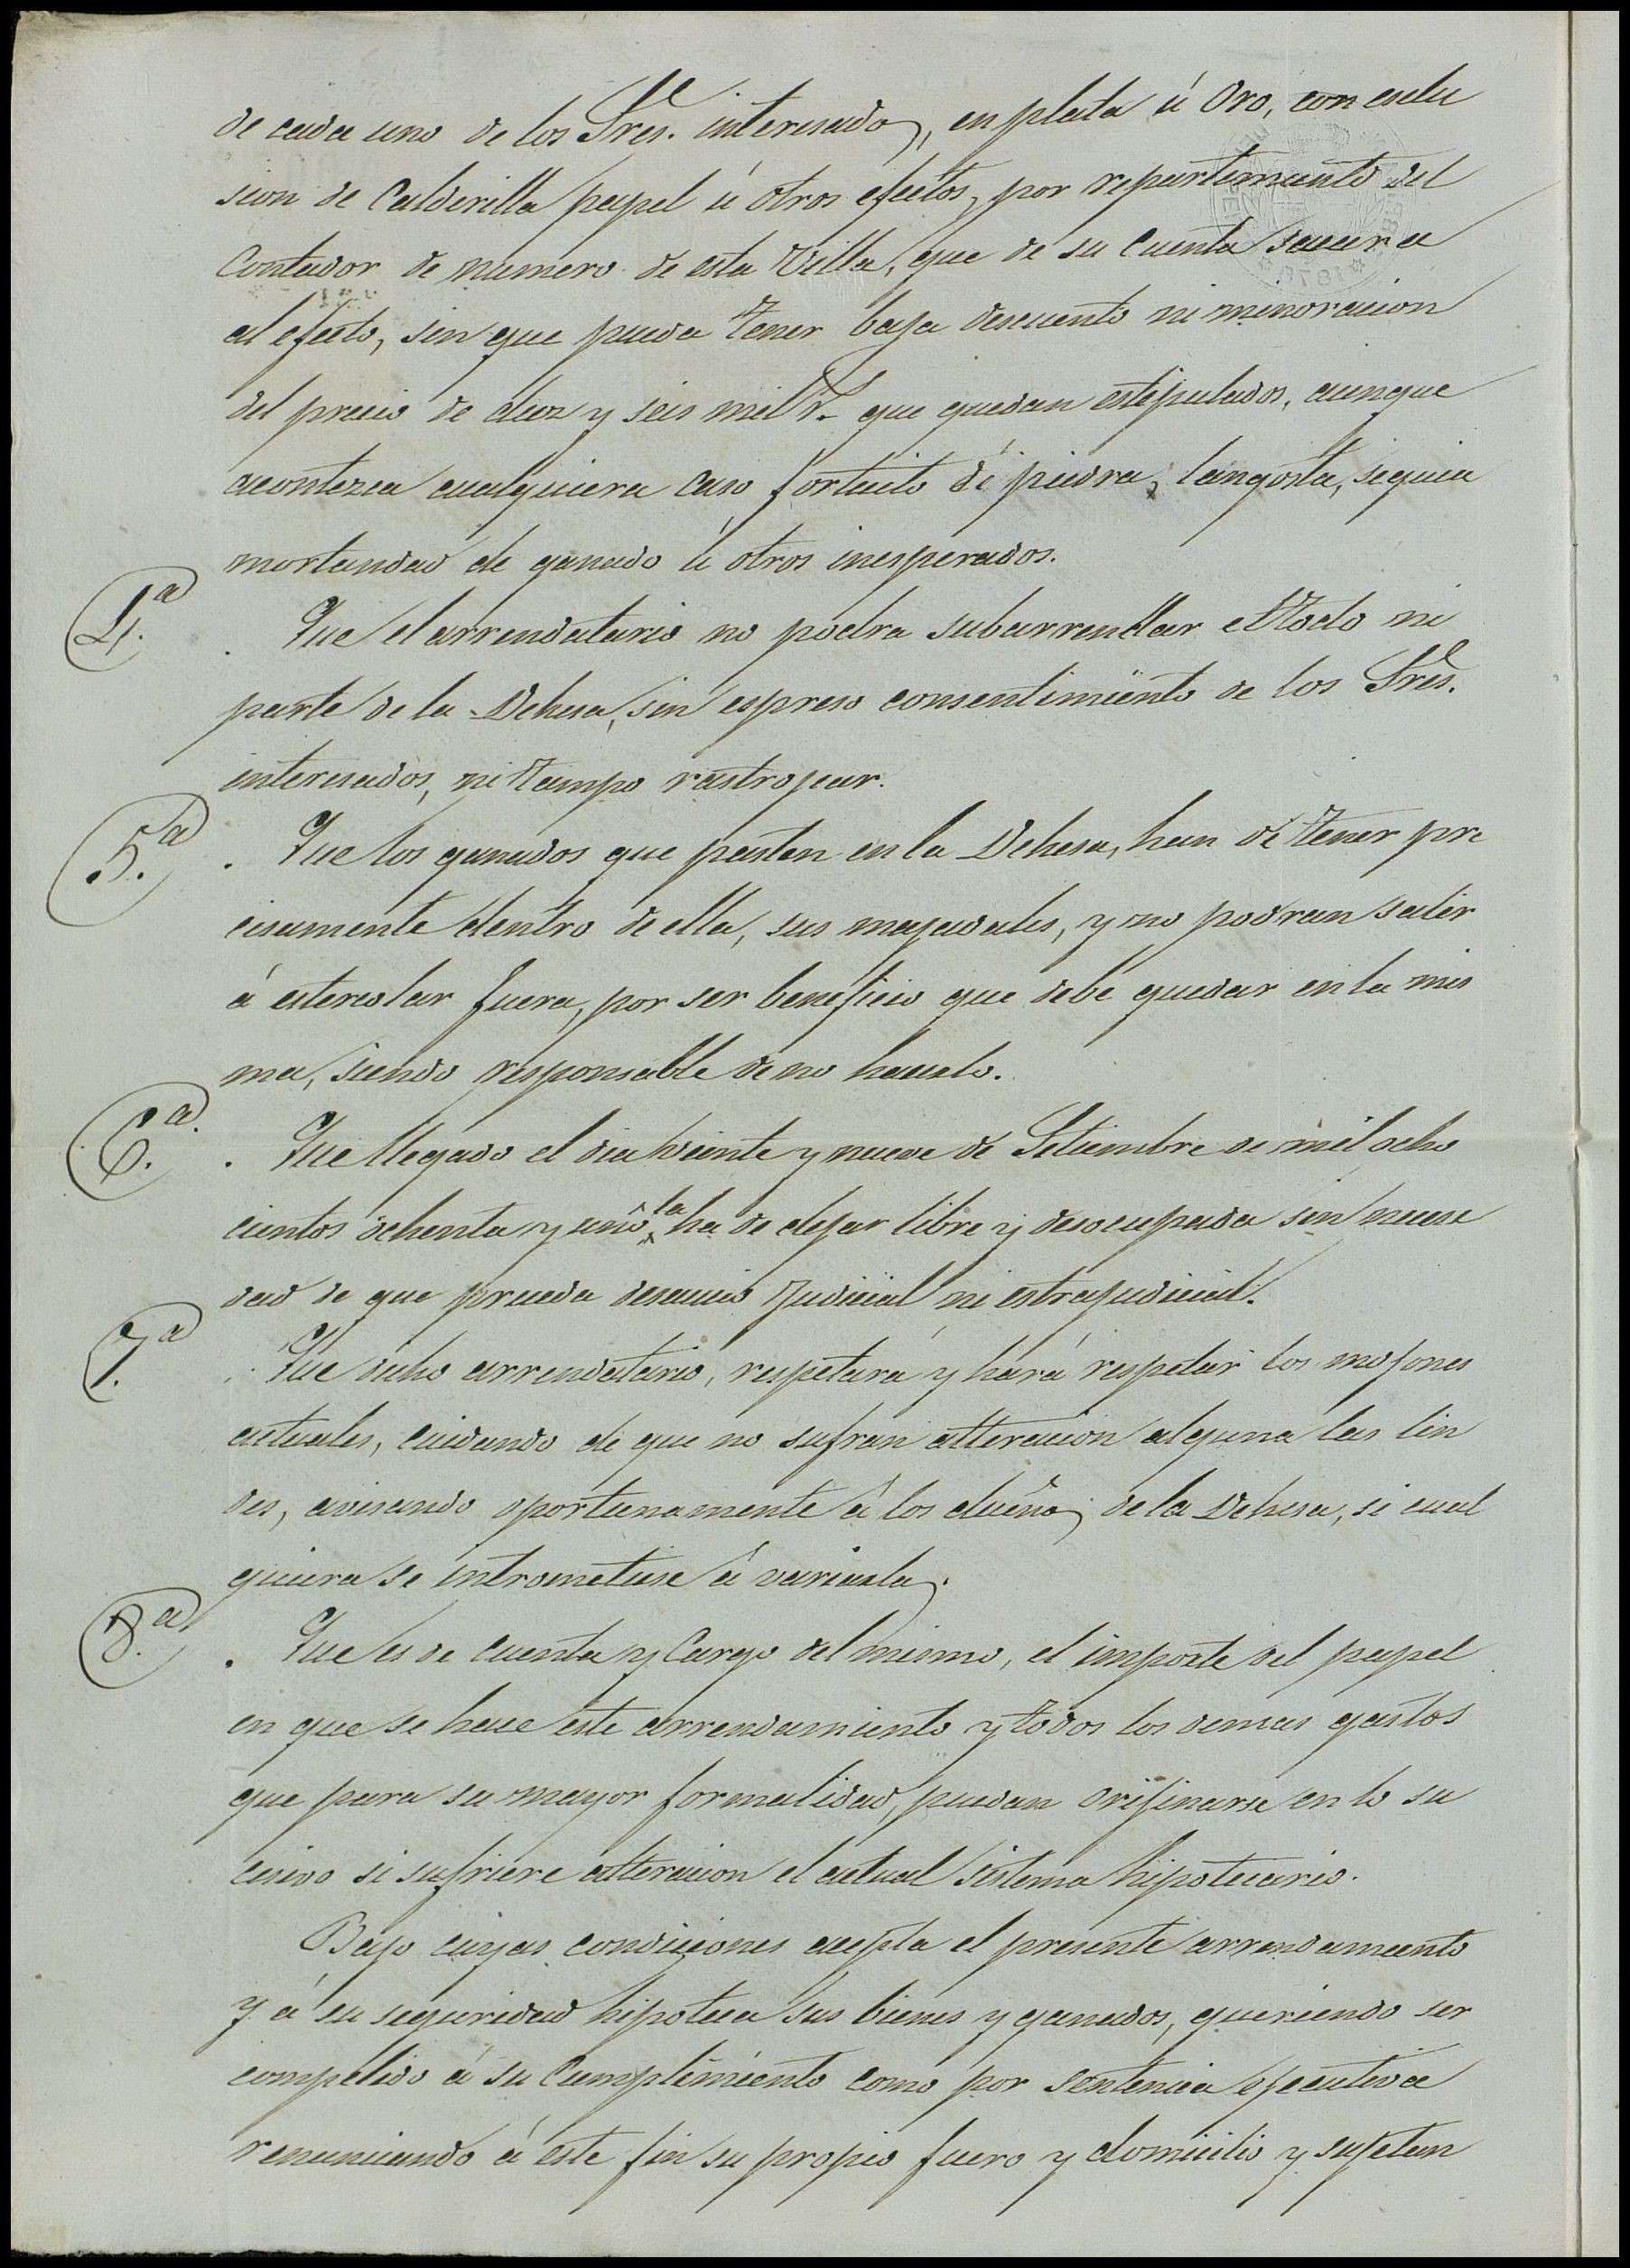 de cada uno de los Sres. interesados, en plata ú Oro, con esclu
sion de Calderilla papel ú otros efectos, por repartimiento del
Contador de numero de esta Villa, que de su Cuenta sacara
al efecto, sin que pueda tener baja descuento ni minoracion
del precio de diez y seis mil r.s que quedan estipulados, aunque
acontezca cualquiera caso fortuito de piedra, langosta, sequia
mortandad de ganado ú otros inesperados.
4.ª Que el arrendatario no podra subarrendar el todo ni
parte de la Dehesa, sin espreso consentimiento de los Sres.
interesados, ni tampo rastrojear.
5.ª Que los ganados que pasten en la Dehesa, han de tener pre
cisamente dentro de ella, sus majadales, y no podran salir
á estercolar fuera, por ser beneficio que debe quedar en la mis
ma, siendo responsable de no hacerlo.
6.ª Que llegado el dia veinte y nueve de Setiembre de mil ocho
cientos ochenta y uno la ha de dejar libre y desocupada sin necesi
dad de que preceda desaucio Judicial ni estrajudicial.
7.ª Que dicho arrendatario, respetará y hará respetar los mojones
actuales, cuidando de que no sufran alteracion alguna las lin
des, avisando oportunamente á los dueños de la Dehesa, si cual
quiera se intrometiese á variarlas.
8.ª Que es de cuenta y Cargo del mismo, el importe del papel
en que se hace este arrendamiento y todos los demas gastos
que para su mayor formalidad, puedan orijinarse en lo su
cesivo si sufriere alteracion el actual sistema hipotecario.
Bajo cuyas condiciones acepta el presente arrendamiento
y á su seguridad hipoteca sus bienes y ganados, queriendo ser
compelido á su Cumplimiento como por sentencia ejecutiva
renunciando á este fin su propio fuero y domicilio y sujetan